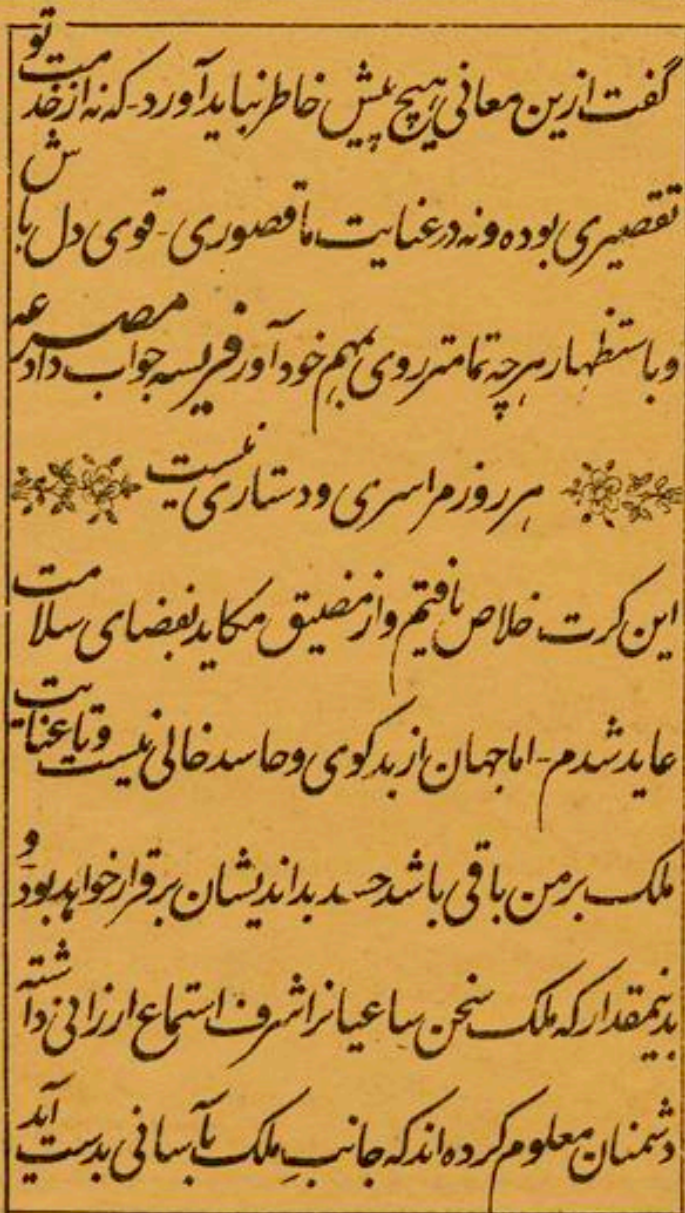 گفت ازین معانی هیچ پیش خاطر نباید آورد - که نه از خدمت تو
تقصیری بوده و نه در عنایت ما قصوری - قوی دل باش
و باستظهار هرچه تمامتر روی بمهم خود آور فریسه جواب داد مصرعه
هر روز مرا سری و دستاری نیست
این کرت خلاص یافتم و از مضیق مکاید بفضای سلامت
عاید شدم - اما جهان از بدگوی و حاسد خالی نیست و تا عنایت
ملک بر من باقی باشد حسد بداندیشان برقرار خواهد بود و
بدینمقدار که ملک سخن ساعیانرا شرف استماع ارزانی داشته
دشمنان معلوم کرده اند که جانب ملک بآسانی بدست آید